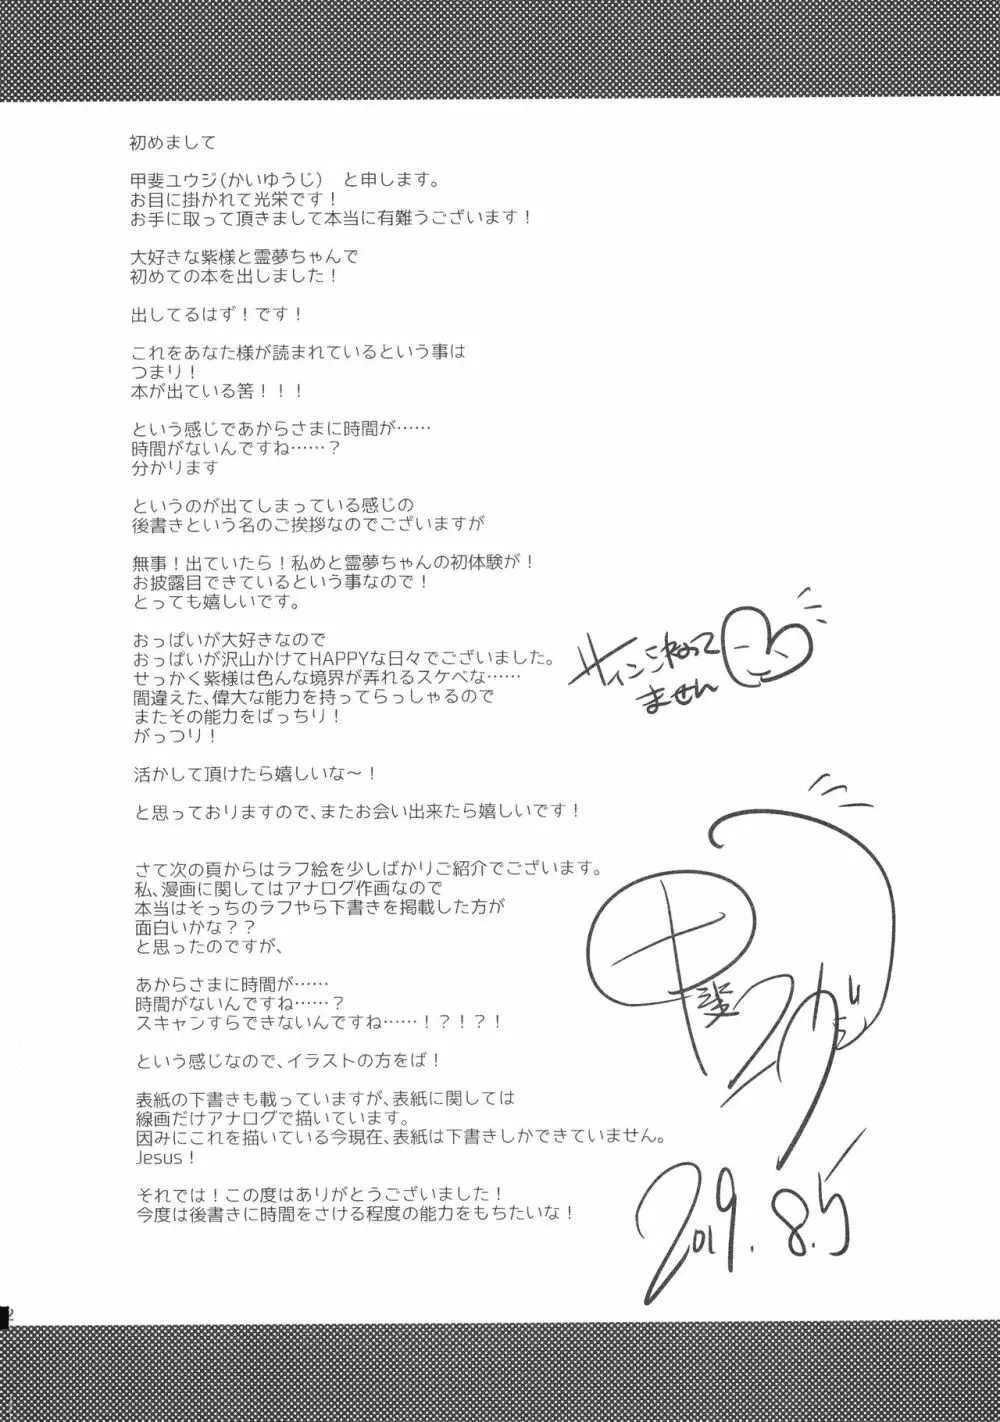 初めまして
甲斐ユウジ(かいゆうじ)　と申します。
お目に掛かれて光栄です！
お手に取って頂きまして本当に有難うございます！
大好きな紫様と霊夢ちゃんで
初めての本を出しました！
出してるはず！です！
これをあなた様が読まれているという事は
つまり！
本が出ている筈！！！
という感じであからさまに時間が……
時間がないんですね……？
分かります
というのが出てしまっている感じの
後書きという名のご挨拶なのでございますが
無事！出ていたら！私めと霊夢ちゃんの初体験が！
お披露目できているという事なので！
とっても嬉しいです。
おっぱいが大好きなので
おっぱいが沢山かけてHAPPYな日々でございました。
せっかく紫様は色んな境界が弄れるスケベな……
間違えた、偉大な能力を持ってらっしゃるので
またその能力をばっちり！
がっつり！
活かして頂けたら嬉しいな～！
と思っておりますので、またお会い出来たら嬉しいです！
さて次の頁からはラフ絵を少しばかりご紹介でございます。
私、漫画に関してはアナログ作画なので
本当はそっちのラフやら下書きを掲載した方が
面白いかな？？
と思ったのですが、
あからさまに時間が……
時間がないんですね……？
スキャンすらできないんですね……！？！？！
という感じなので、イラストの方をば！
表紙の下書きも載っていますが、表紙に関しては
線画だけアナログで描いています。
因みにこれを描いている今現在、表紙は下書きしかできていません。
Jesus！
それでは！この度はありがとうございました！
今度は後書きに時間をさける程度の能力をもちたいな！
サインこなって
ません
甲斐ユウジ
2019.8.5
2